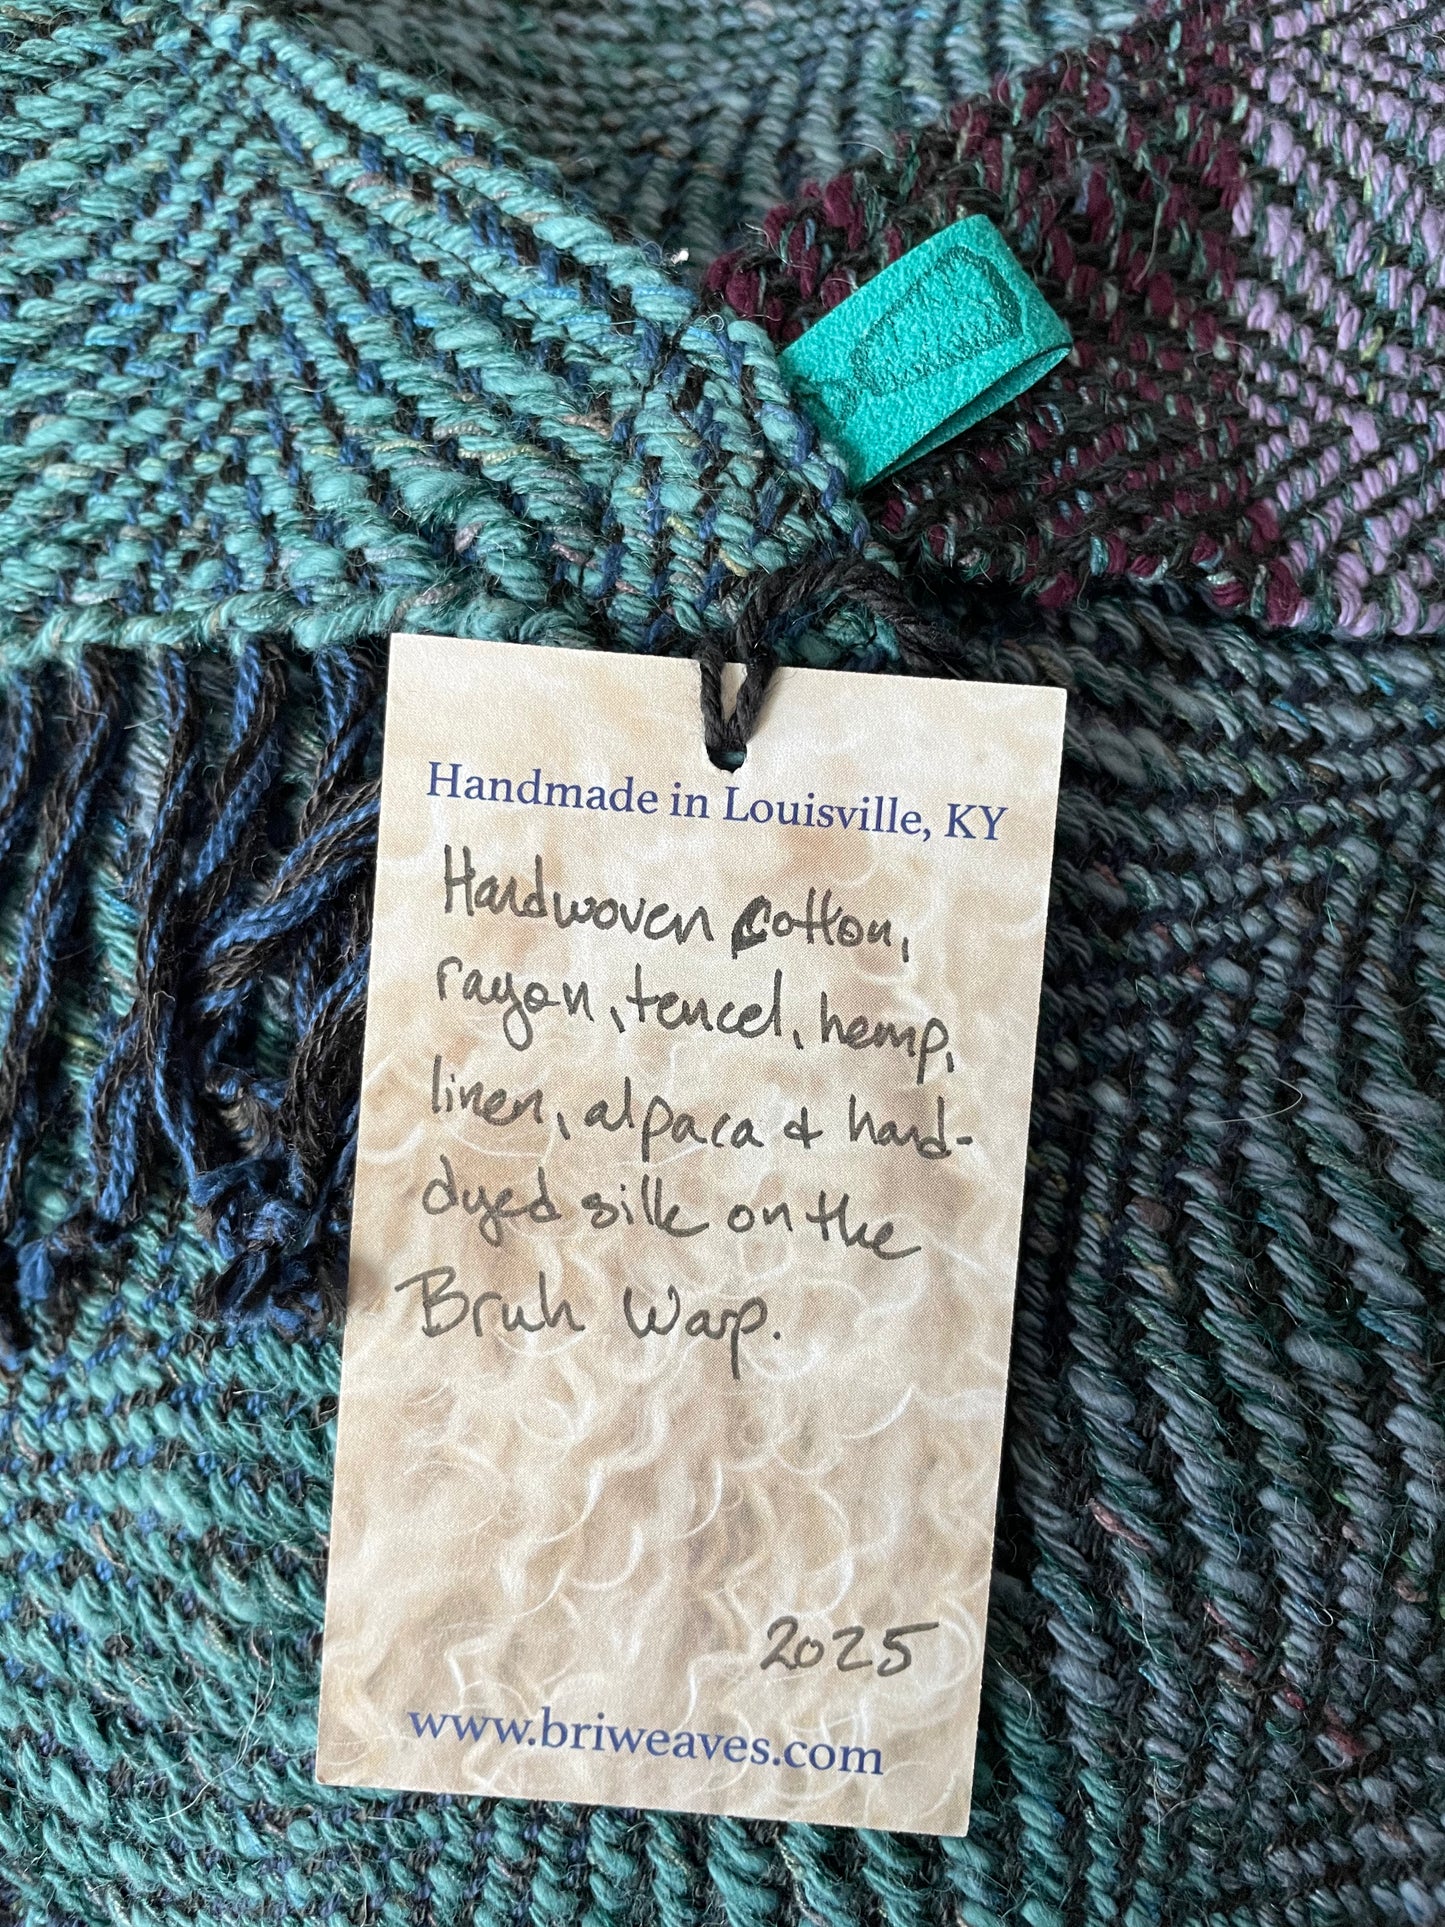 Handmade in Louisville, KY
Handwoven Cotton,
rayon, tencel, hemp,
linen, alpaca & hand-
dyed silk on the
Bruh Warp.
2025
www.briweaves.com